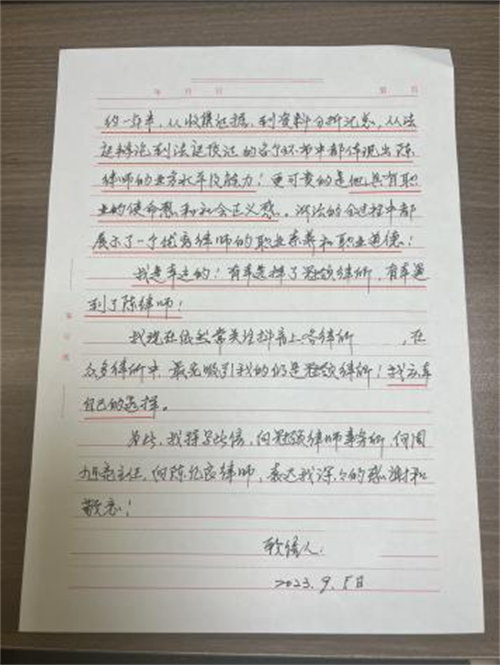 年 月 日 第 页
约一年半，从收集证据，到资料分析汇总，从法
庭辩论到法庭质证的各个环节中都体现出陈
律师的业务水平及能力！更可贵的是他具有职
业的使命感和社会正义感。涉法的全过程中都
展示了一个优秀律师的职业素养和职业道德！
我是幸运的！有幸选择了冠领律所，有幸遇
到了陈律师！
我现在依然常关注抖音上各律所 ，在
众多律所中，最先吸引我的仍是冠领律所！我庆幸
自己的选择。
为此，我择写此信，向冠领律师事务所，向周
旭亮主任，向陈 律师，表达我深深的感谢和
敬意！
致信人：
2023.9.5日